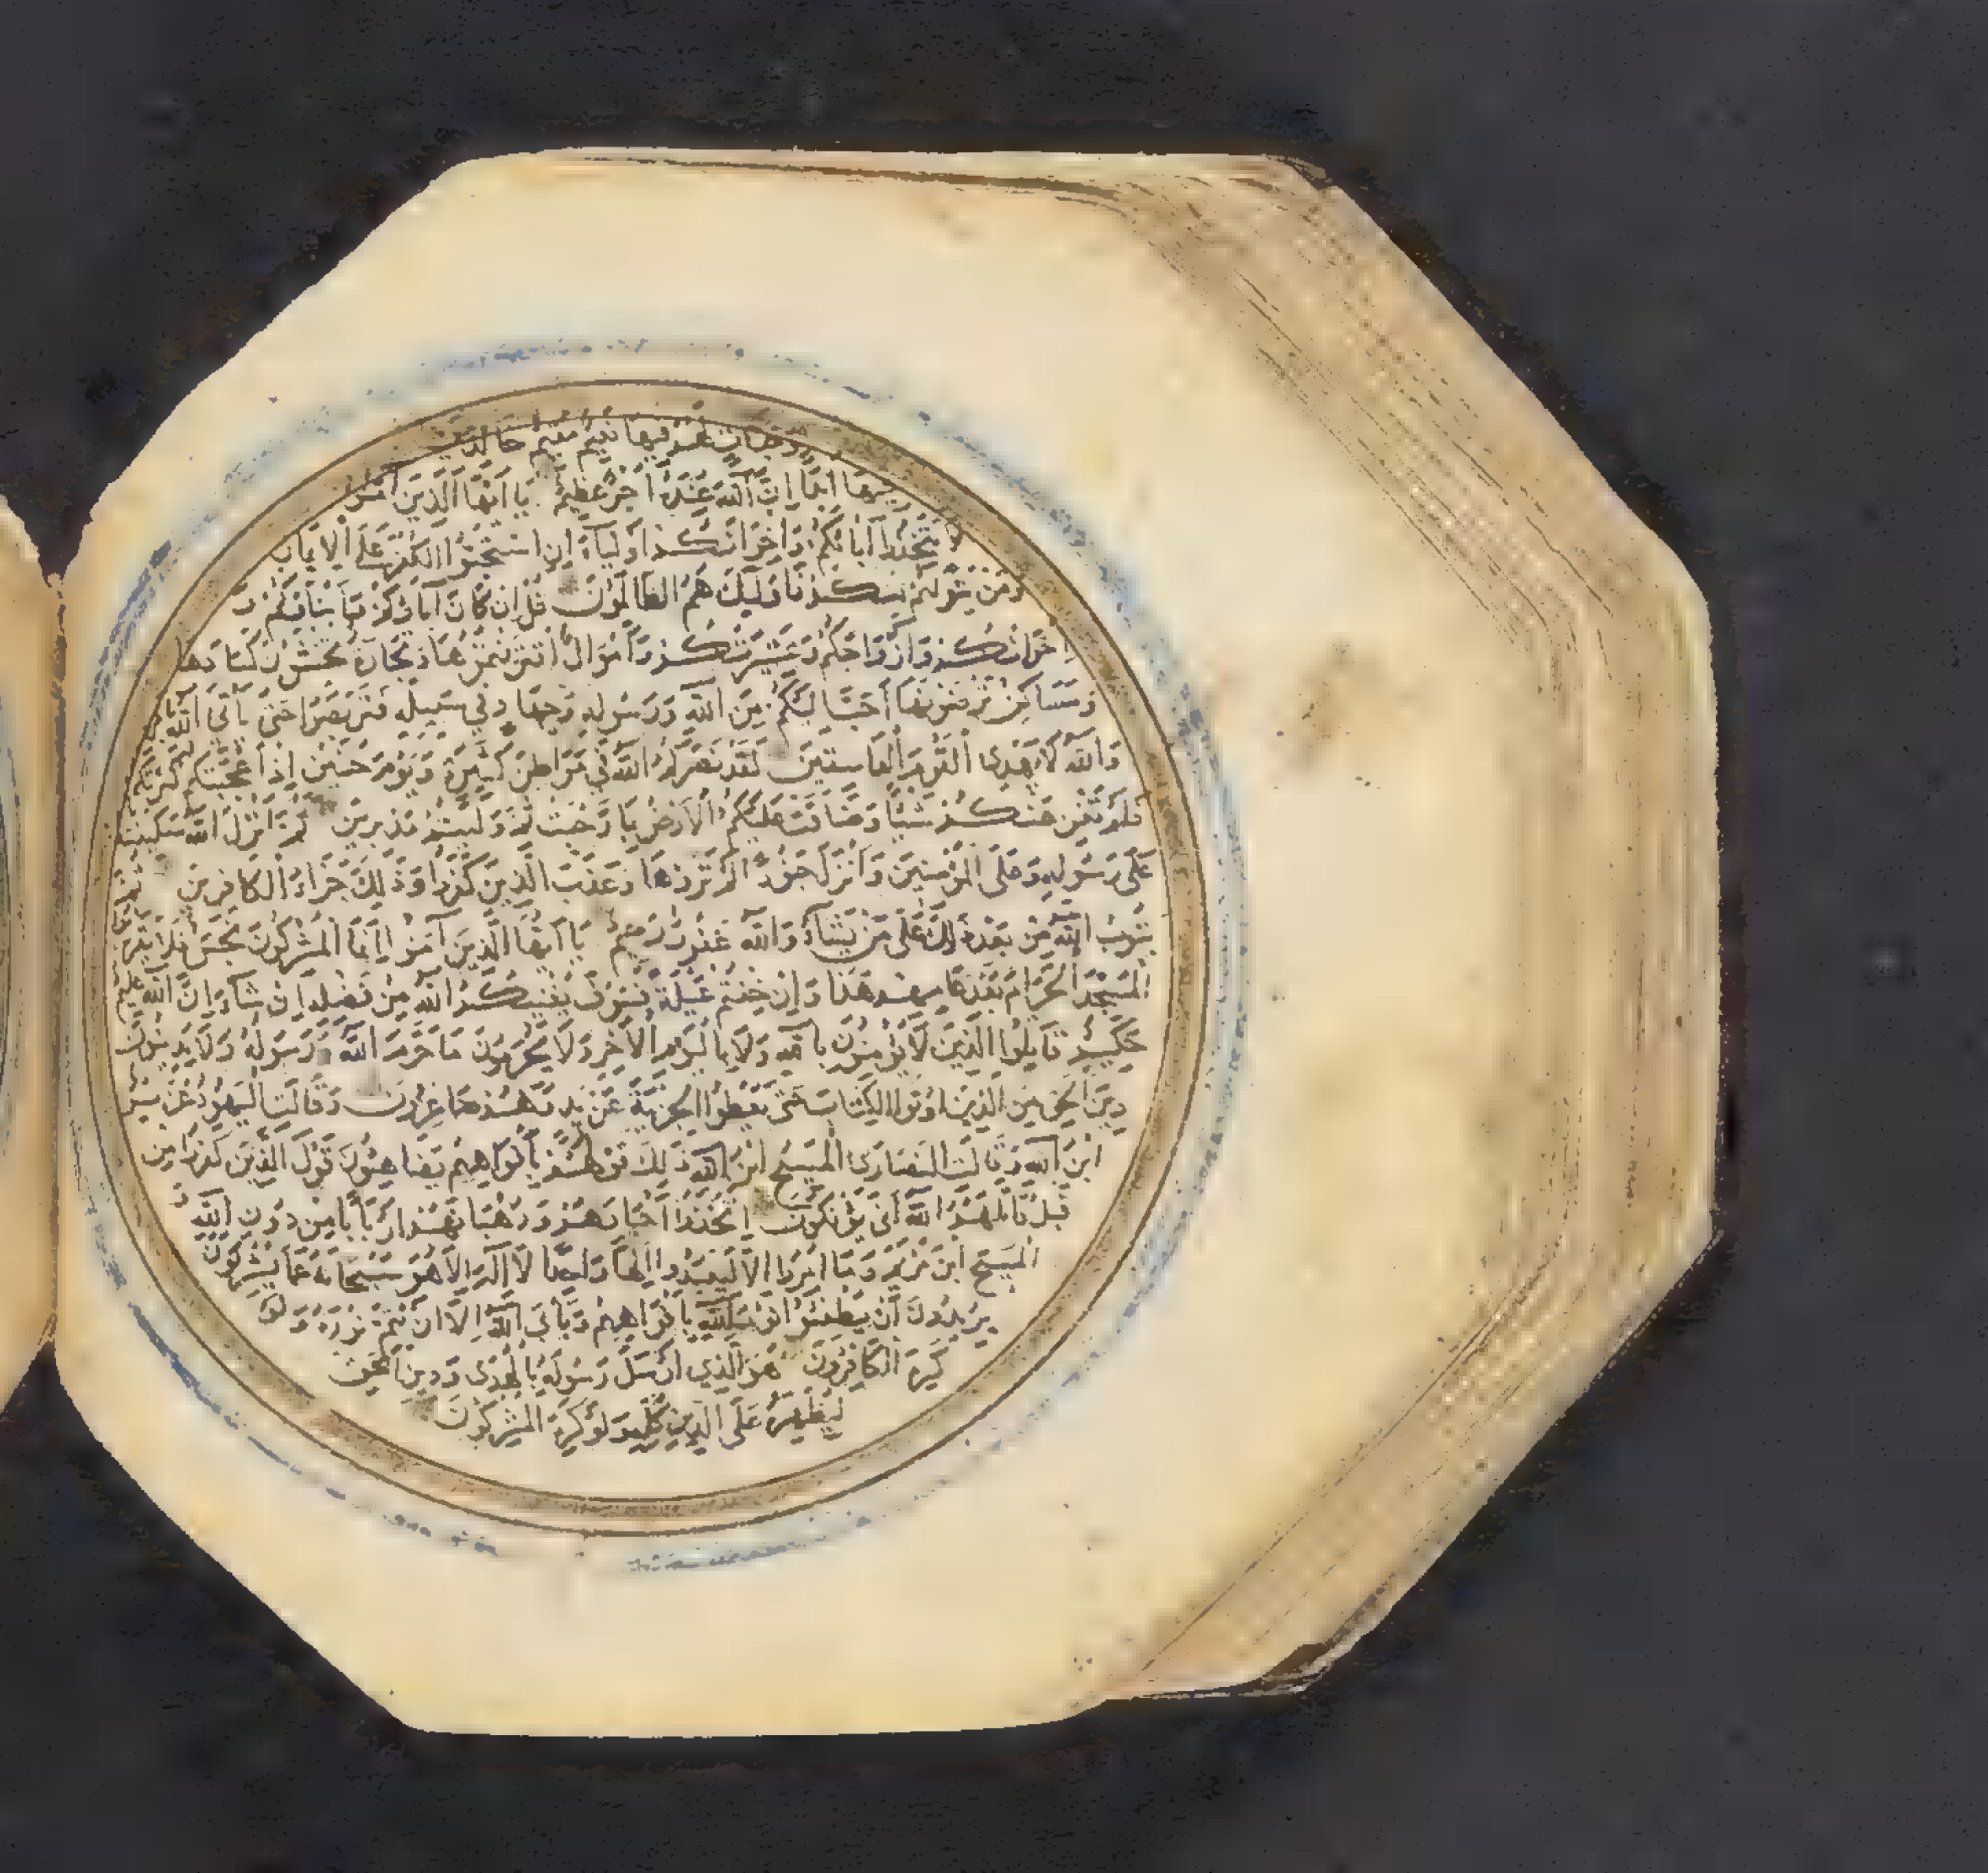 وجنات لهم فيها نعيم مقيم خالدين
فيها ابدا ان الله عنده اجر عظيم يا ايها الذين امنوا
لا تتخذوا آبائكم واخوانكم اولياء ان استحبوا الكفر على الايمان
ومن يتولهم منكم فاوليك هم الظالمون قل ان كان آباؤكم وابناؤكم و
اخوانكم وازواجكم وعشيرتكم وأموال اقترفتموها وتجارة تخشون كسادها
ومساكن ترضونها أحب اليكم من الله ورسوله وجهاد في سبيله فتربصوا حتى يأتى الله بامره
والله لا يهدى القوم الفاسقين لقد نصركم الله في مواطن كثيرة ويوم حنين اذ أعجبتكم كثرتكم
فلم تغن عنكم شيئا وضاقت عليكم الارض بما رحبت ثم وليتم مدبرين ثم انزل الله سكينته
على رسوله وعلى المؤمنين وأنزل جنودا لم تروها وعذب الذين كفروا وذلك جزاء الكافرين ثم
يتوب الله من بعد ذلك على من يشاء والله غفور رحيم يا ايها الذين آمنوا انما المشركون نجس فلا يقربوا
المسجد الحرام بعد عامهم هذا وان خفتم عيلة فسوف يغنيكم الله من فضله ان شاء ان الله عليم
حكيم قاتلوا الذين لا يؤمنون بالله ولا باليوم الآخر ولا يحرمون ما حرم الله ورسوله ولا يدينون
دين الحق من الذين اوتوا الكتاب حتى يعطوا الجزية عن يد وهم صاغرون وقالت اليهود عزير
ابن الله وقالت النصارى المسيح ابن الله ذلك قولهم بأفواههم يضاهئون قول الذين كفروا من
قبل قاتلهم الله أنى يؤفكون اتخذوا أحبارهم ورهبانهم اربابا من دون الله و
المسيح ابن مريم وما امروا الا ليعبدوا الها واحدا لا اله الا هو سبحانه عما يشركون
يريدون أن يطفئوا نور الله بافواههم ويأبى الله الا ان يتم نوره ولو
كره الكافرون هو الذي ارسل رسوله بالهدى ودين الحق
ليظهره على الدين كله ولو كره المشركون